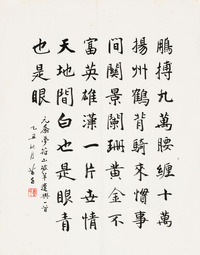 鵬搏九萬腰纏十萬
揚州鶴背騎來慣事
間關景闌珊黃金不
富英雄漢一片世情
天地間白也是眼青
也是眼
元喬夢符山坡羊興一首
乙丑秋月